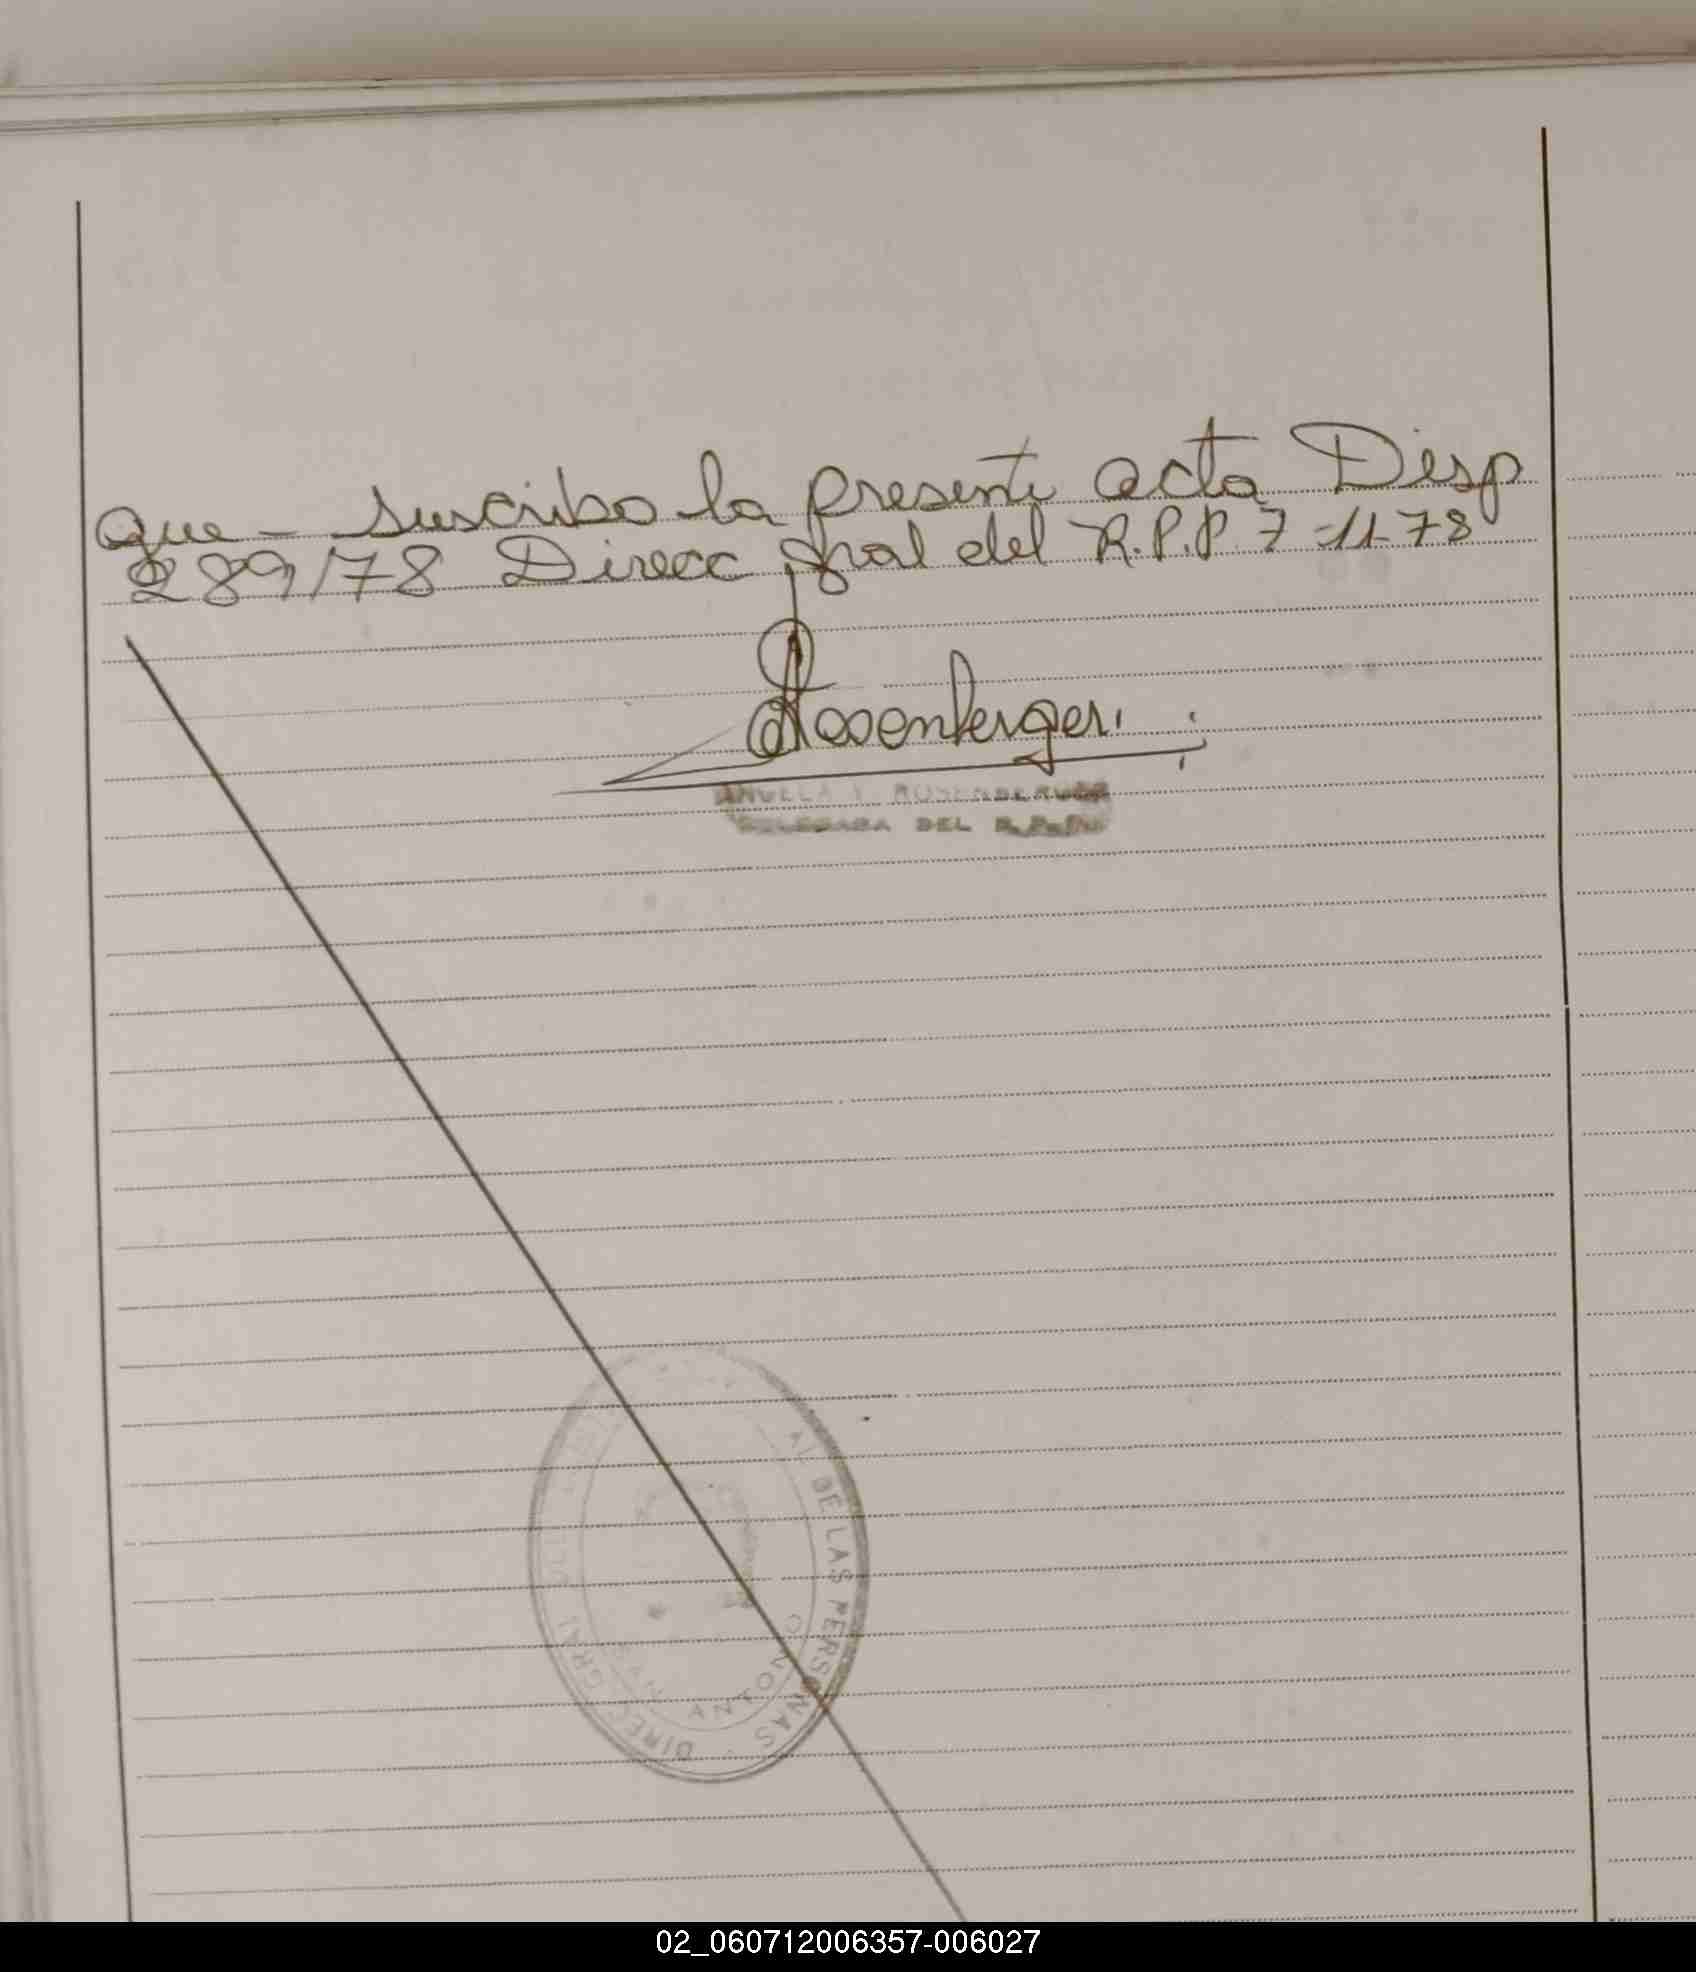 que - suscribo la presente acta Disp
289/78 Direcc gral del R.P.P 7-11-78
Rosenberger
ROSENBERGER
DELEGADA DEL
AL DE LAS PERSONAS - DIREC GRAL
SAN ANTONIO
02_060712006357-006027